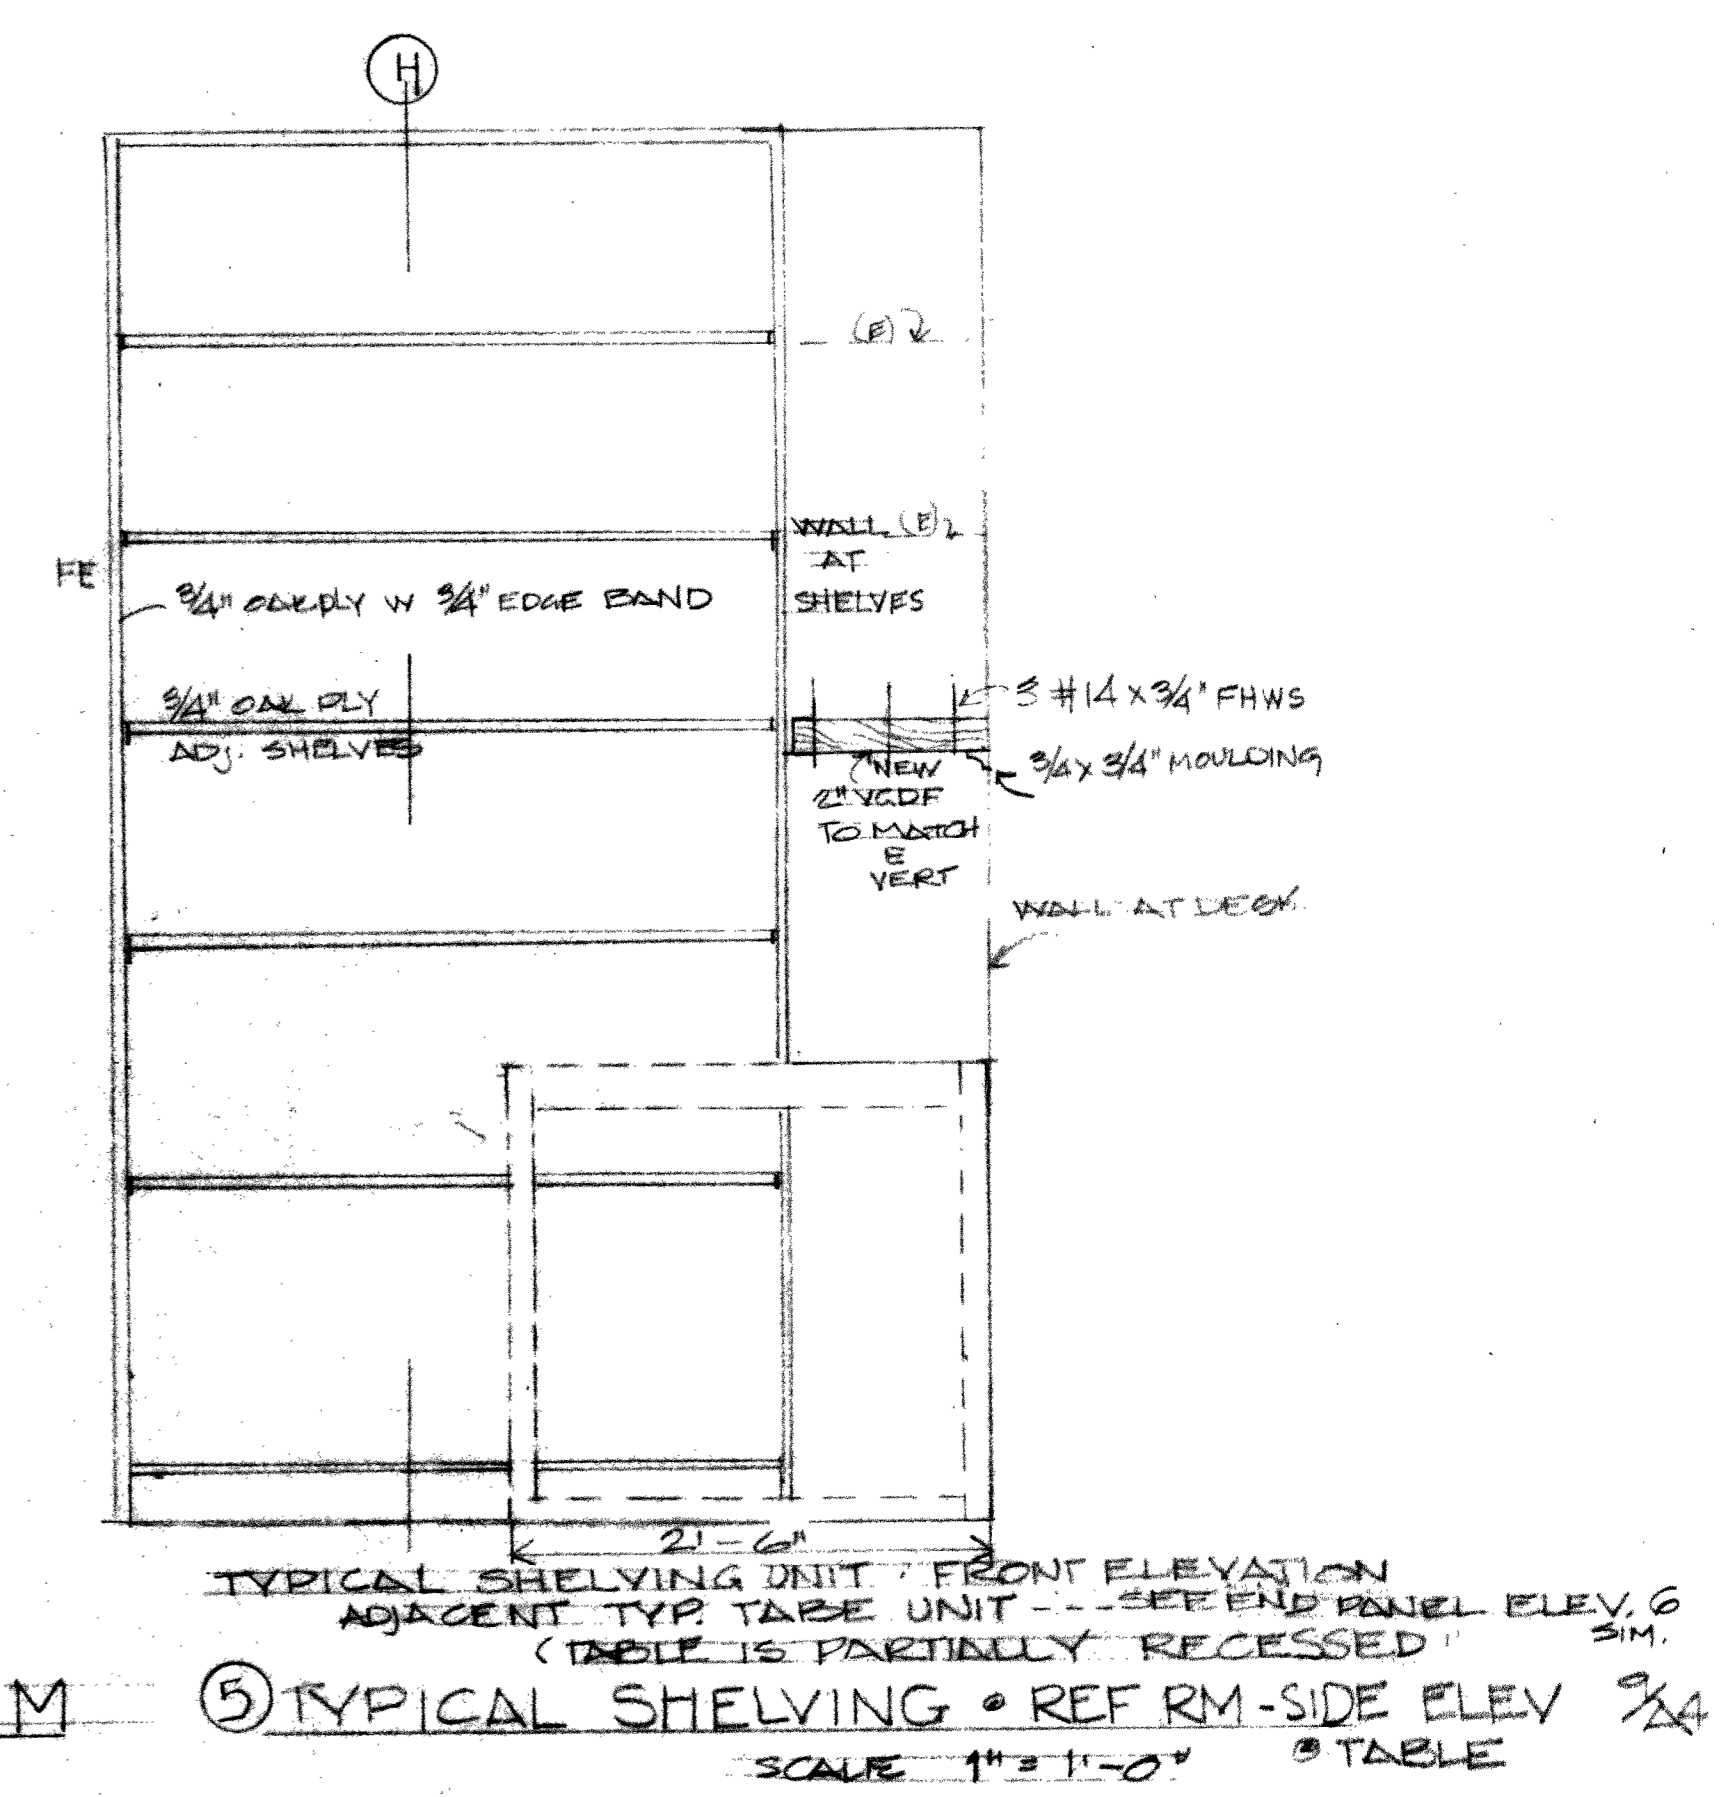 H
(E)
WALL (E)
AT
SHELVES
FE
3/4" OAK PLY W 3/4" EDGE BAND
3/4" OAK PLY
ADJ. SHELVES
3 #14 x 3/4" FHWS
3/4 x 3/4" MOULDING
NEW
2" VGDF
TO MATCH
E
VERT
WALL AT DESK
2'-6"
TYPICAL SHELVING UNIT · FRONT ELEVATION
ADJACENT TYP. TABE UNIT ---SEE END PANEL ELEV. 6
SIM.
(TABLE IS PARTIALLY RECESSED
M
5 TYPICAL SHELVING • REF RM - SIDE ELEV 9/A4
@ TABLE
SCALE 1" = 1'-0"